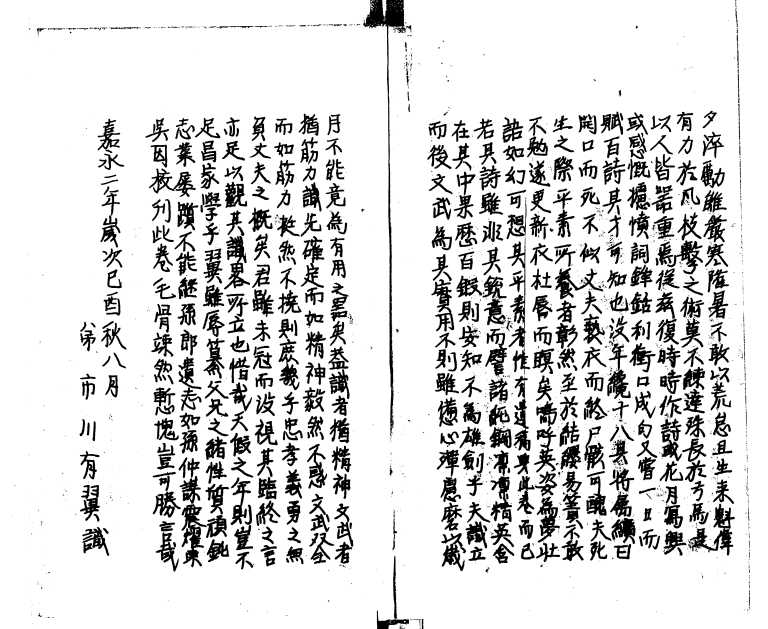 夕淬勵雖嚴寒隆暑不敢以荒怠且生来魁偉
有力於凡技擊之術莫不練達殊長於弓馬是
以人皆器重焉從茲復時時作詩或花月寫興
或感慨攄憤詞鋒銛利衝口成句又嘗一日而
賦百詩其才可知也沒年纔十八其將屬纊曰
開口而死不似丈夫褻衣而終尸戲可醜夫死
生之際平素所養者彰然至於結纓易簀不敢
不勉遂更新衣杜唇而瞑矣嗚呼英姿為夢壯
語如幻可想其平素者惟有遺稿此卷而已
若其詩雖非其銳意而譬諸純鋼凜凜精英含
在其中果歷百鍛則安知不為雄劍乎夫識立
而後文武為其實用不則雖憊心殫慮磨以歲
月不能竟為有用之器矣蓋識者猶精神文武者
猶筋力識先確定而如精神毅然不惑文武双全
而如筋力挺然不撓則庶幾乎忠孝義勇之無
負丈夫之概矣君雖未冠而沒視其臨終之言
亦足以觀其識畧所立也惜哉天假之年則豈不
足昌家學乎翼雖辱纂父兄之緒性質頑鈍
志業屢躓不能繼孫郎遺志如孫仲謀震耀東
吳因校刊此卷毛骨竦然慙愧豈可勝言哉
嘉永二年歲次己酉秋八月
弟市川有翼識